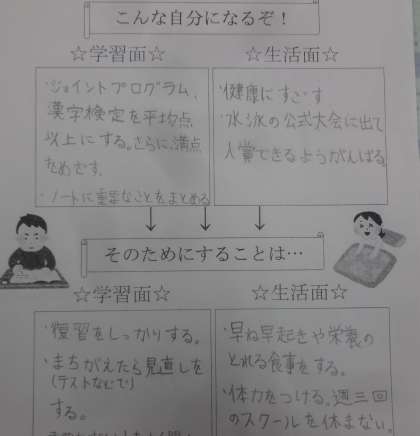 こんな自分になるぞ！
☆学習面☆
・ジョイントプログラム、
漢字検定を平均点
以上にする。さらに、満点
をめざす。
・ノートに重要なことをまとめる
☆生活面☆
・健康にすごす
・水泳の公式大会に出て
入賞できるようがんばる。
そのためにすることは…
☆学習面☆
・復習をしっかりする。
・まちがえたら見直しを
(テストなどで)
する。
☆生活面☆
・早ね早起きや栄養の
とれる食事をする。
・体力をつける。週三回
のスクールを休まない。